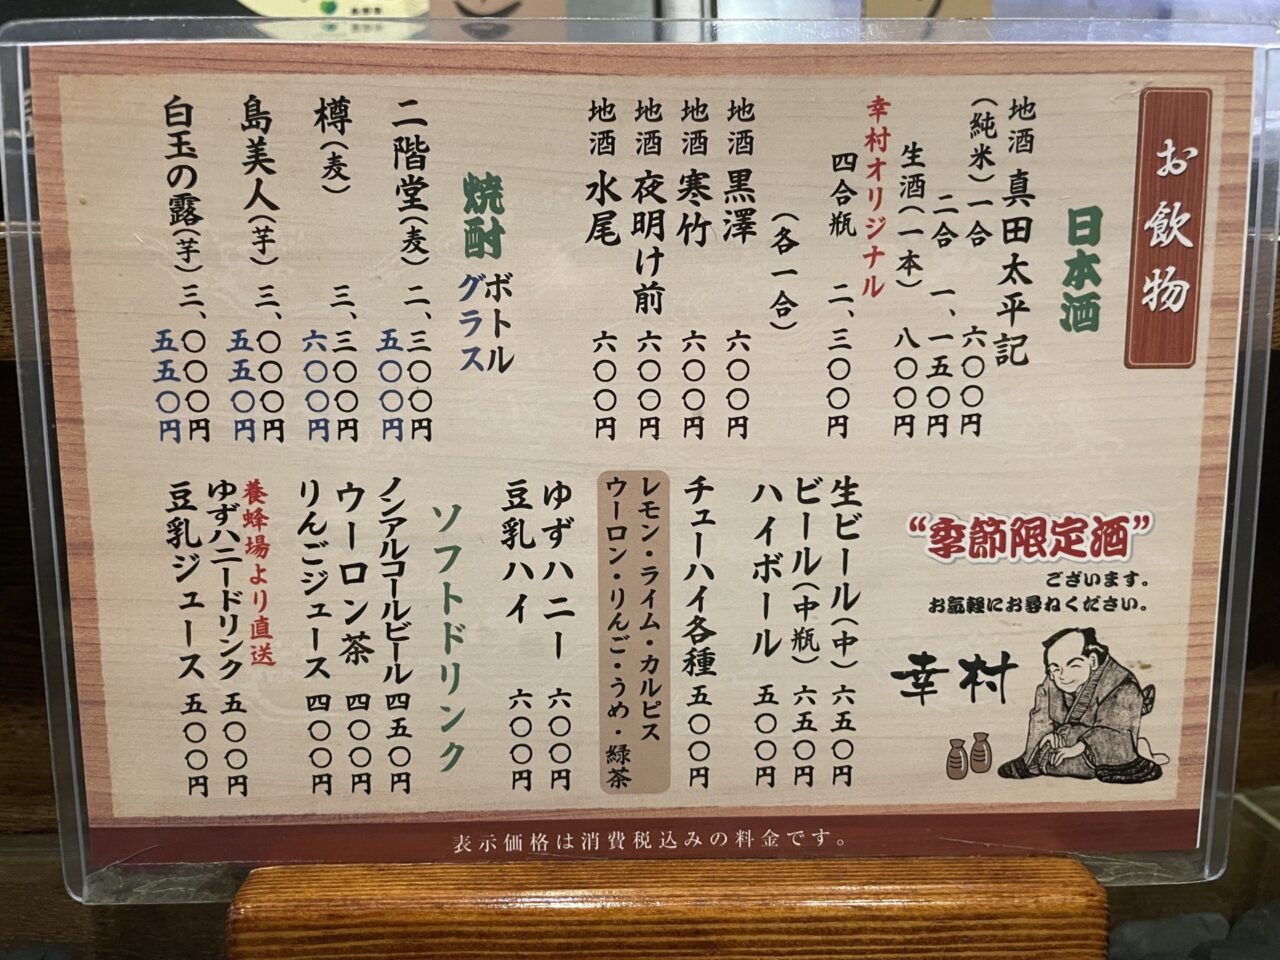 お飲物
日本酒
地酒 真田太平記
（純米）一合 六〇〇円
二合 一、一五〇円
生酒（一本） 八〇〇円
幸村オリジナル
四合瓶 二、三〇〇円
（各一合）
地酒 黒澤 六〇〇円
地酒 寒竹 六〇〇円
地酒 夜明け前 六〇〇円
地酒 水尾 六〇〇円
焼酎 ボトル
グラス
二階堂（麦） 二、三〇〇円
五〇〇円
樽（麦） 三、三〇〇円
六〇〇円
島美人（芋） 三、〇〇〇円
五五〇円
白玉の露（芋） 三、〇〇〇円
五五〇円
“季節限定酒”
ございます。
お気軽にお尋ねください。
幸村
生ビール（中） 六五〇円
ビール（中瓶） 六五〇円
ハイボール 五〇〇円
チューハイ各種 五〇〇円
レモン・ライム・カルピス
ウーロン・りんご・うめ・緑茶
ゆずハニー 六〇〇円
豆乳ハイ 六〇〇円
ソフトドリンク
ノンアルコールビール 四五〇円
ウーロン茶 四〇〇円
りんごジュース 四〇〇円
養蜂場より直送
ゆずハニードリンク 五〇〇円
豆乳ジュース 五〇〇円
表示価格は消費税込みの料金です。